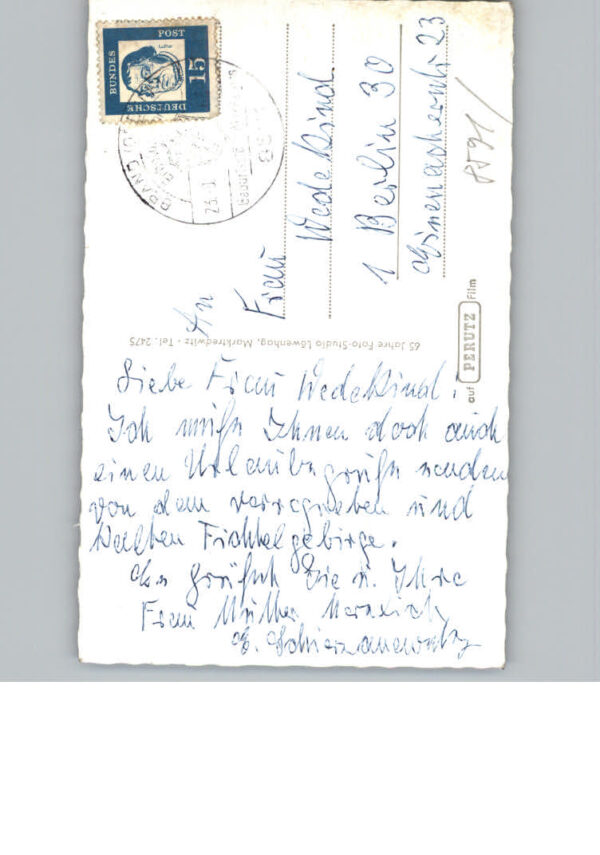 DEUTSCHE
BUNDES
POST
15
An
Frau
Wedekind
1 Berlin 30
Eisenacherstr. 23
8591/
auf PERUTZ Film
65 Jahre Foto-Studio Löwenhag, Marktredwitz · Tel. 2475
Liebe Frau Wedekind!
Ich muß Ihnen doch auch
einen Urlaubsgruß senden
von dem verregneten und
kalten Fichtelgebirge.
Es grüßt Sie u. Ihre
Frau Mutter herzlich